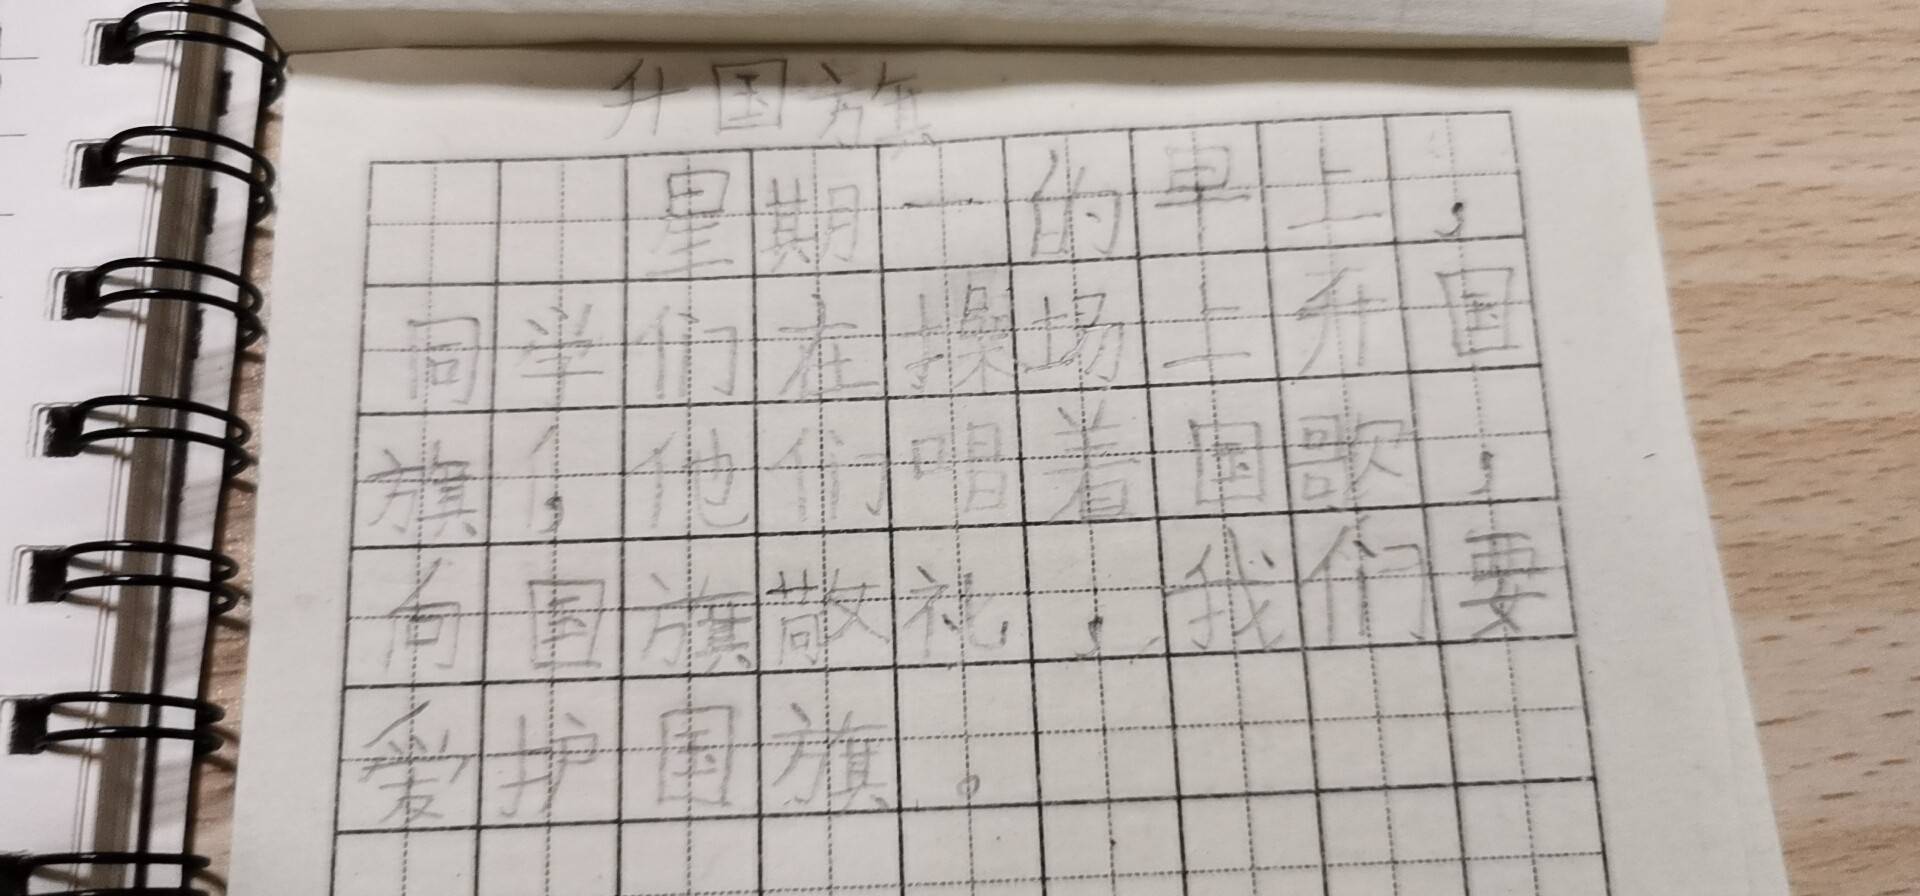 升国旗
星期一的早上，
同学们在操场上升国
旗，他们唱着国歌，
向国旗敬礼，我们要
爱护国旗。